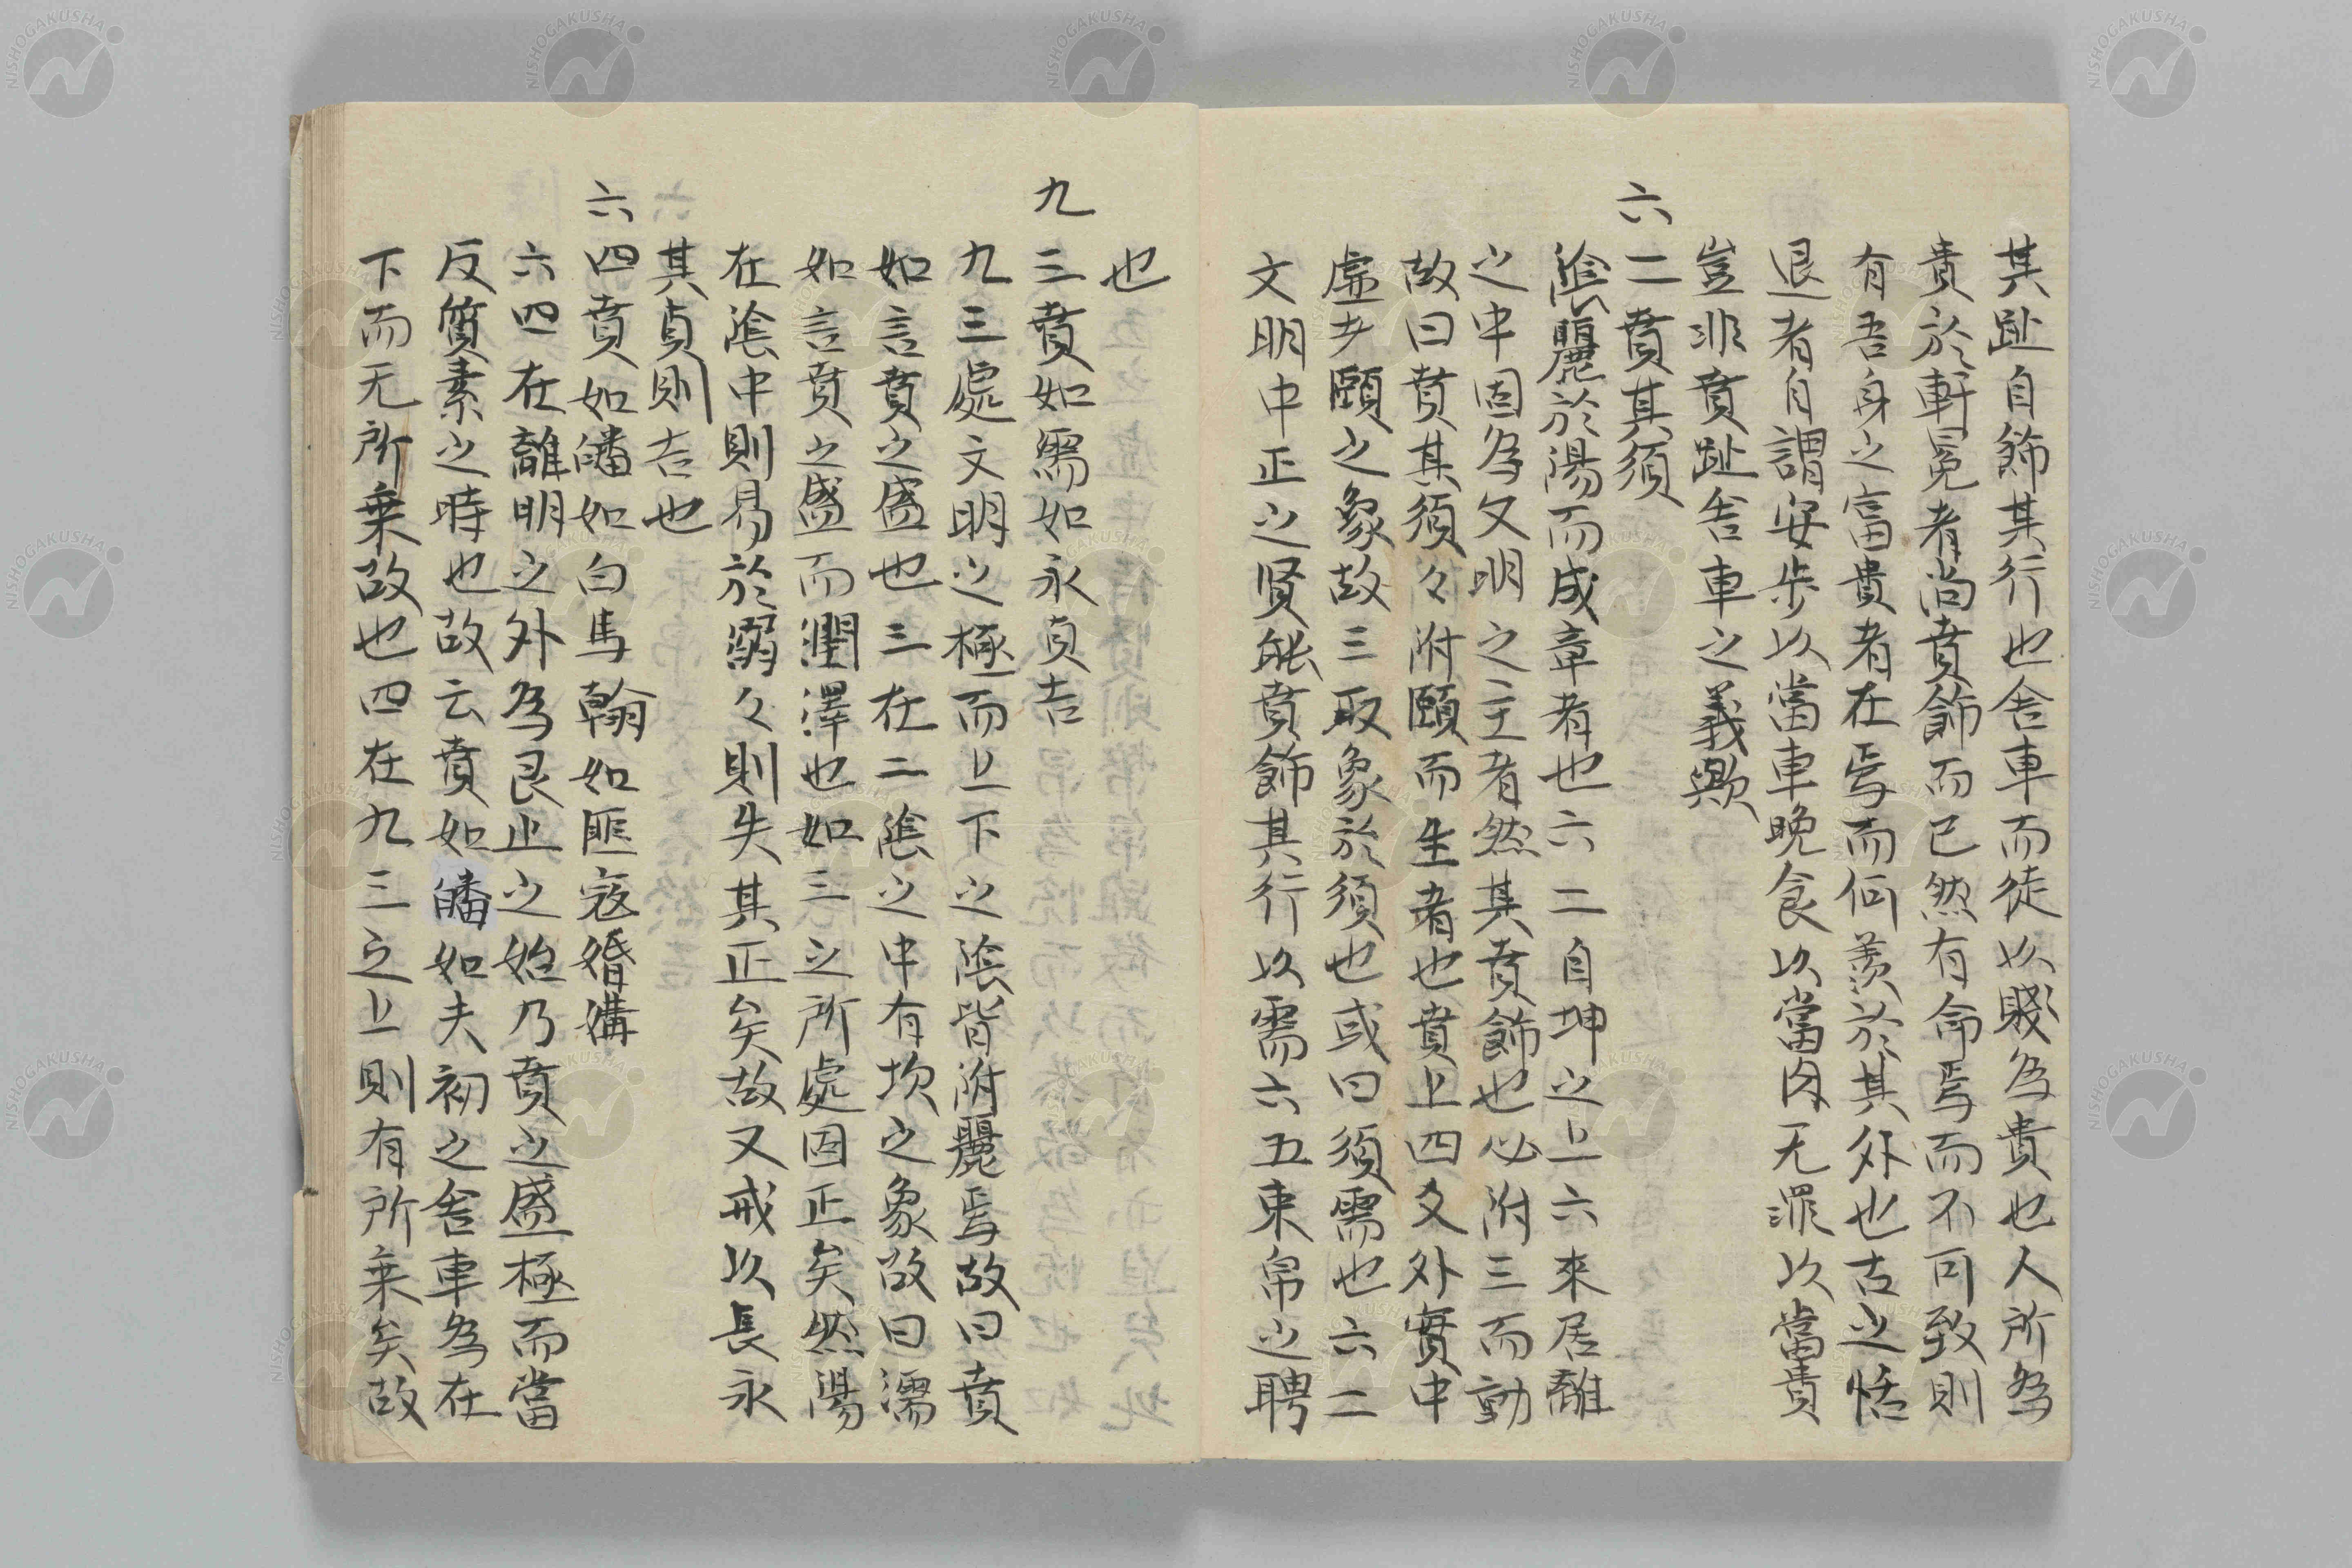 其趾自飾其行也舍車而徒以賤為貴也人所為
貴於軒冕者尚賁飾而已然有命焉而不可致則
有吾身之富貴者在焉而何羨於其外也古之恬
退者自謂安步以當車晚食以當肉无罪以當貴
豈非賁趾舍車之義歟
六二賁其須
陰麗於陽而成章者也六二自坤之上六來居離
之中固為文明之主者然其賁飾也必附三而動
故曰賁其須々附頤而生者也賁上四爻外實中
虛才頤之象故三取象於須也或曰須需也六二
文明中正之賢能賁飾其行以需六五束帛之聘
也
九三賁如濡如永貞吉
九三處文明之極而上下之陰皆附麗焉故曰賁
如言賁之盛也三在二陰之中有坎之象故曰濡
如言賁之盛而潤澤也如三之所處固正矣然陽
在陰中則易於溺々則失其正矣故又戒以長永
其貞則吉也
六四賁如皤如白馬翰如匪寇婚媾
六四在離明之外為艮止之始乃賁之盛極而當
反質素之時也故云賁如皤如夫初之舍車為在
下而无所乗故也四在九三之上則有所乗矣故
NISHOGAKUSHA